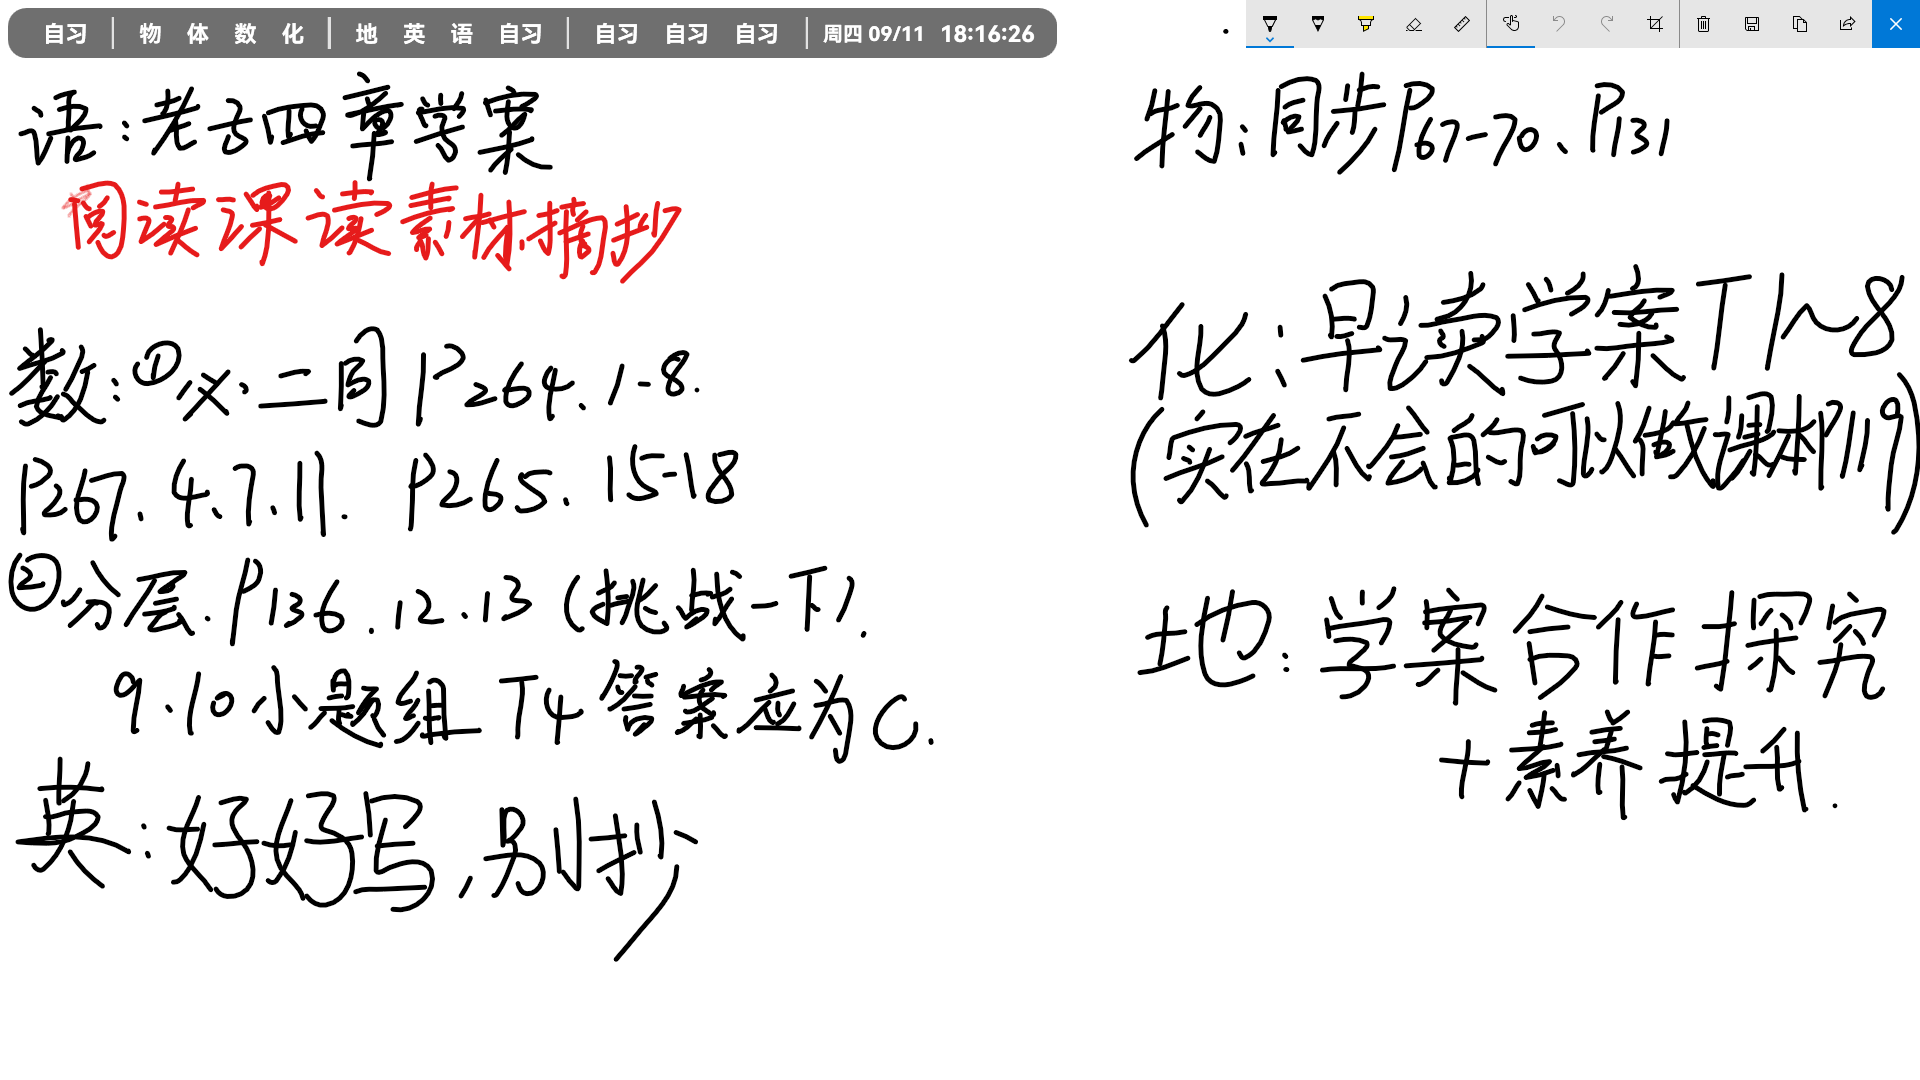 自习 | 物 体 数 化 | 地 英 语 自习 | 自习 自习 自习 | 周四 09/11 18:16:26
语:老子四章学案
阅读课读素材摘抄
数:①必二同P264.1-8.
P267.4.7.11. P265.15-18
②分层.P136.12.13(挑战一下).
9.10小题组 T4答案应为C.
英:好好写,别抄
物:同步P67-70、P131
化:早读学案T1~8
(实在不会的可以做课本P119)
地:学案合作探究
+素养提升.